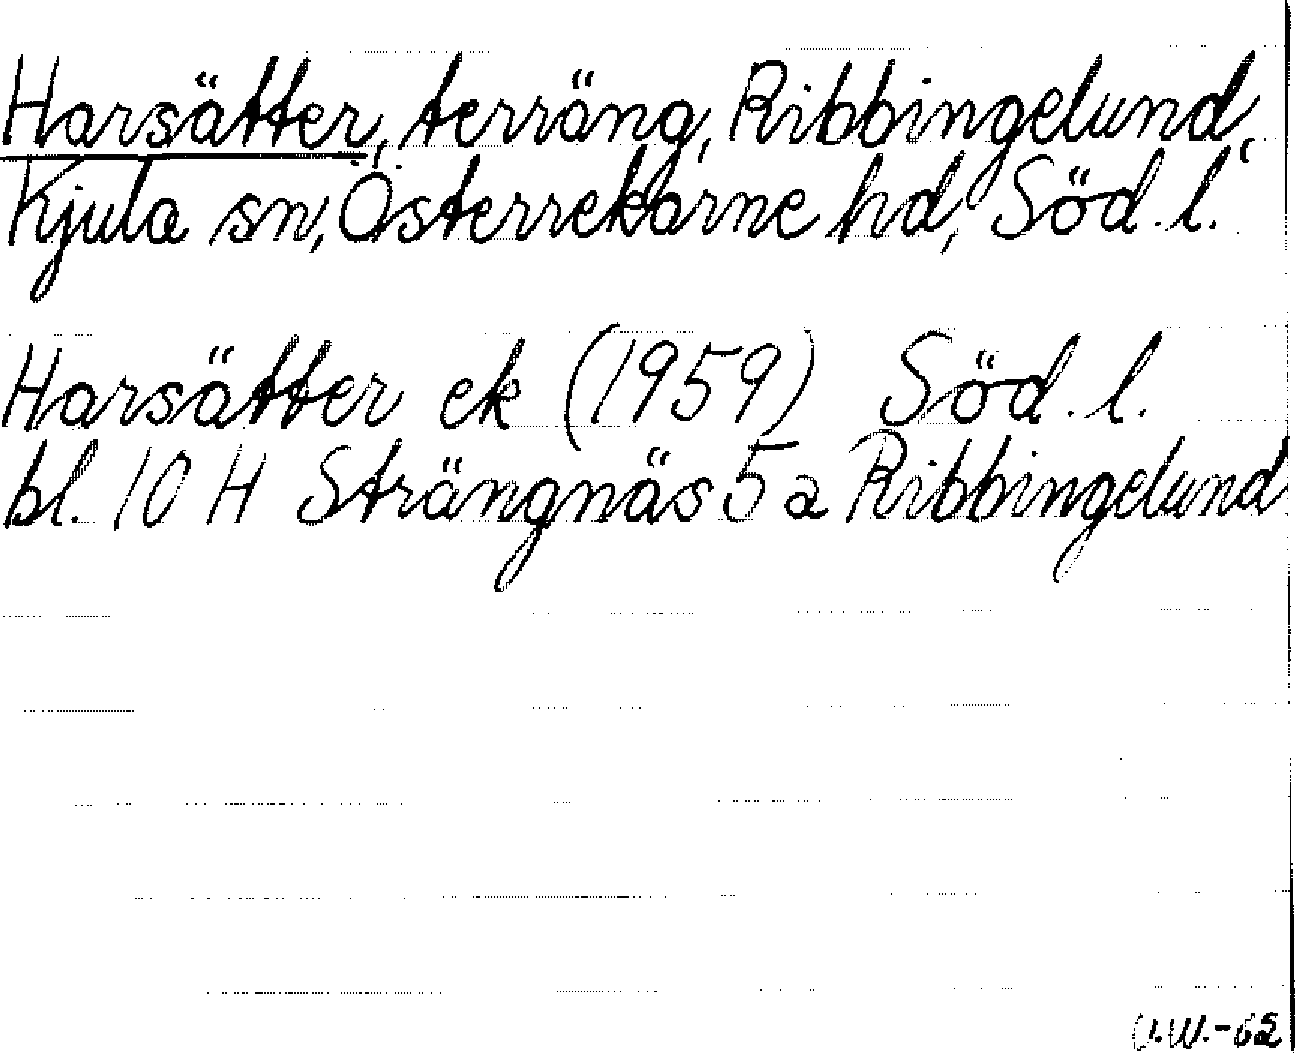 Harsätter, terräng, Ribbingelund,
Kjula sn, Österrekarne hd, Söd. l.
Harsätter ek (1959) Söd. l.
bl. 10 H Strängnäs 5 a Ribbingelund
U.W.-62